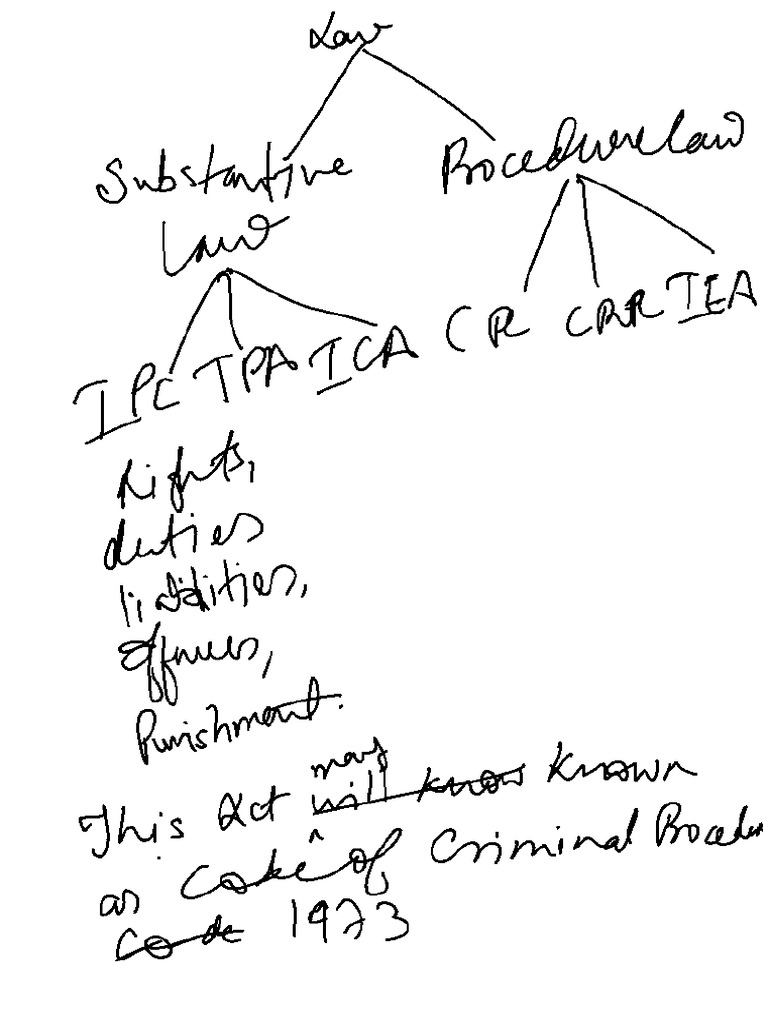 Law
Substantive Procedure law
Law
IPC TPA ICA CPC CRPC IEA
Rights,
duties
liabilities,
offences,
Punishment.
may
This Act will know known
as Code of Criminal Procedure
Code 1973